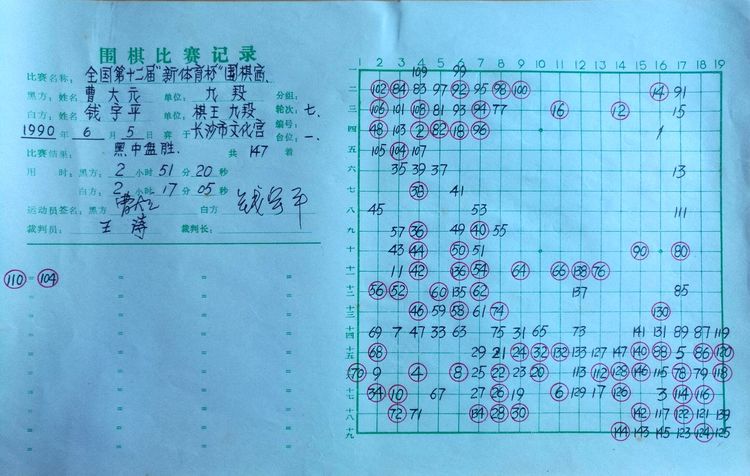 围棋比赛记录
比赛名称: 全国第十二届"新体育杯"围棋赛
黑方: 姓名 曹大元 单位: 九段 分组:
白方: 姓名 钱宇平 单位: 棋王 九段 轮次: 七.
1990 年 6 月 5 日 赛 于 长沙市文化宫 编号: 台位: 一.
比赛结果: 黑中盘胜. 共 147 着
用 时: 黑方: 2 小时 51 分 20 秒
白方: 2 小时 17 分 05 秒
运动员签名: 黑方 白方 钱宇平
裁判员: 王涛 裁判长:
110 = 104
1 2 3 4 5 6 7 8 9 10 11 12 13 14 15 16 17 18 19
109 99
二 102 84 83 97 92 95 98 100 14 91
三 106 101 108 81 93 94 77 16 12 15
四 48 103 2 82 18 96 1
五 105 104 107
六 35 39 37 13
七 38 41
八 45 53 111
九 57 36 49 40 55
十 43 44 50 51 90 80
十一 11 42 136 54 64 66 138 76
十二 56 52 60 135 62 137 85
十三 46 59 58 61 74 130
十四 69 7 47 33 63 75 31 65 73 141 131 89 87 119
十五 68 29 21 24 32 132 133 127 147 140 88 5 86 120
十六 70 9 4 8 25 22 23 20 113 112 128 146 115 78 79 118
十七 34 10 67 27 26 19 6 129 17 126 3 114 116
十八 72 71 134 28 30 142 117 122 121 139
十九 144 143 145 123 124 125